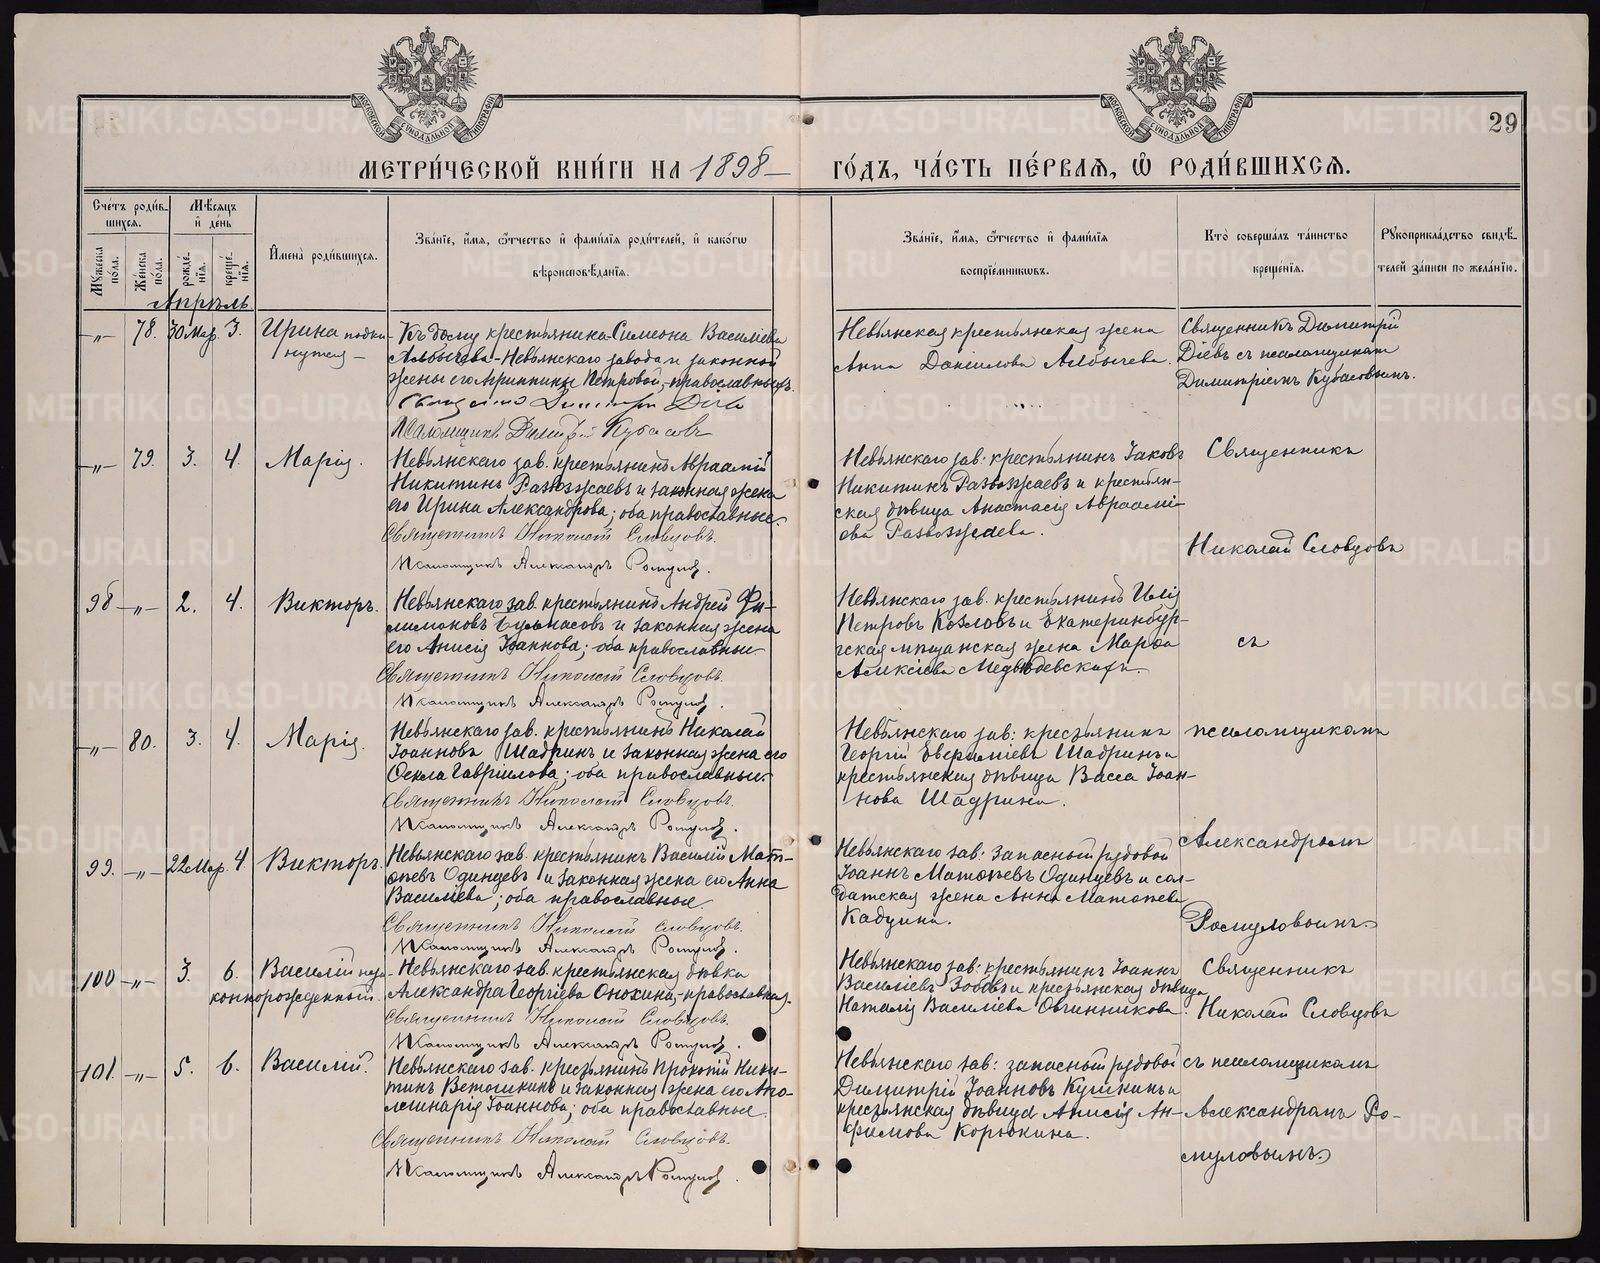 29
МЕТРИ́ЧЕСКОЙ КНИ́ГИ НА 1898 ГО́ДЪ, ЧА́СТЬ ПЕ́РВАѦ, Ѽ РОДИ́ВШИХСѦ.
Сче́тъ роди́в-
шихсѧ.
Мѣ́сѧцъ
и҆ де́нь
И҆мена̀ роди́вшихсѧ.
Зва́нїе, и҆́мѧ, ѻ҆́тчество и҆ фами́лїѧ роди́телей, и҆ како́гѡ
вѣроисповѣ́данїѧ.
Зва́нїе, и҆́мѧ, ѻ҆́тчество и҆ фами́лїѧ
воспрїе́мникѡвъ.
Кто̀ соверша́лъ та́инство
креще́нїѧ.
Рꙋкоприкла́дство свидѣ́-
телей за́писи по жела́нїю.
Мꙋ́жеска по́ла.
Же́нска по́ла.
рожде́нїѧ.
креще́нїѧ.
Апрѣль
-„- 78. 30 Мар. 3. Ирина подки-
нутая-
Къ дому крестьянина Симеона Василіева
Албычева-Невьянскаго завода и законной
жены его Агриппины Петровой,-православныхъ.
Священникъ Димитрій Діевъ
Псаломщикъ Димитрій Кубасовъ
Невьянская крестьянская жена
Анна Даніилова Албычева.
Священникъ Димитрій
Діевъ съ псаломщикомъ
Димитріемъ Кубасовымъ.
-„- 79. 3. 4. Марія.
Невьянскаго зав. крестьянинъ Авраамій
Никитинъ Развозжаевъ и законная жена
его Ирина Александрова; оба православные.
Священникъ Николай Словцовъ.
Псаломщикъ Александръ Ромулов.
Невьянскаго зав. крестьянинъ Іаковъ
Никитинъ Развозжаевъ и крестьян-
ская дѣвица Анастасія Авраамі-
ева Развозжаева.
Священникъ
Николай Словцовъ
98 -„- 2. 4. Викторъ.
Невьянскаго зав. крестьянинъ Андрей Фи-
лимоновъ и законная жена
его Анисія Іоаннова; оба православные
Священникъ Николай Словцовъ.
Псаломщикъ Александръ Ромулов.
Невьянскаго зав. крестьянинъ Илія
Петровъ Козловъ и Екатеринбур-
гская мѣщанская жена Марѳа
Алексіева
съ
-„- 80. 3. 4. Марія.
Невьянскаго зав. крестьянинъ Николай
Іоанновъ Шадринъ и законная жена его
Ѳекла Гавріилова; оба православные.
Священникъ Николай Словцовъ.
Псаломщикъ Александръ Ромулов.
Невьянскаго зав: крестьянинъ
Георгій Шадринъ и
крестьянская дѣвица Васса Іоан-
нова Шадрина.
псаломщикомъ
99. -„- 22 Мар. 4 Викторъ.
Невьянскаго зав. крестьянинъ Василій Мат-
ѳеевъ Одинцевъ и законная жена его Анна
Василіева; оба православные.
Священникъ Николай Словцовъ.
Псаломщикъ Александръ Ромулов.
Невьянскаго зав: запасный рядовой
Іоаннъ Матѳеевъ Одинцевъ и сол-
датская жена Анна Матѳеева
Кадцина.
Александромъ
Ромуловымъ.
100 -„- 3. 6. Василій неза-
коннорожденный.
Невьянскаго зав. крестьянская дѣвка
Александра Георгіева Онохина,-православная.
Священникъ Николай Словцовъ.
Псаломщикъ Александръ Ромулов.
Невьянскаго зав: крестьянинъ Іоаннъ
Василіевъ и крестьянская дѣвица
Наталія Василіева Овчинникова.
Священникъ
Николай Словцовъ
101. -„- 5. 6. Василій.
Невьянскаго зав. крестьянинъ Прокопій Ники-
тинъ Ветошкинъ и законная жена его Апо-
линарія Іоаннова; оба православные.
Священникъ Николай Словцовъ.
Псаломщикъ Александръ Ромулов.
Невьянскаго зав: запасный рядовой
Димитрій Іоанновъ Кушкинъ и
крестьянская дѣвица Анисія Ан-
фимова Корюкина.
съ псаломщикомъ
Александромъ Ро-
муловымъ.
METRIKI.GASO-URAL.RU